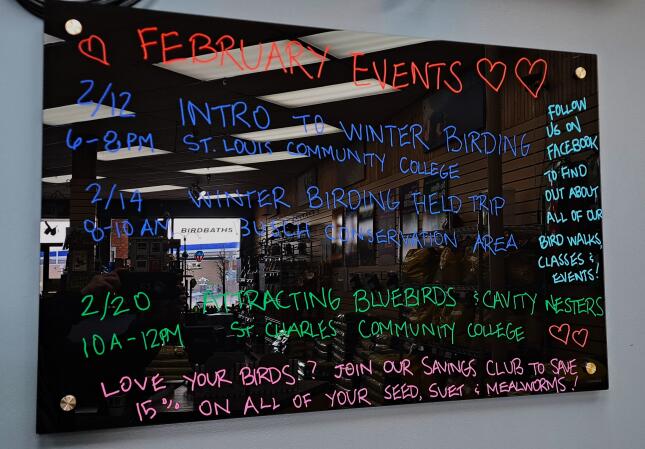 FEBRUARY EVENTS
2/12 INTRO TO WINTER BIRDING
6-8PM ST. LOUIS COMMUNITY COLLEGE
2/14 WINTER BIRDING FIELD TRIP
8-10 AM BUSCH CONSERVATION AREA
2/20 ATTRACTING BLUEBIRDS & CAVITY NESTERS
10A-12PM ST. CHARLES COMMUNITY COLLEGE
LOVE YOUR BIRDS!? JOIN OUR SAVINGS CLUB TO SAVE
15% ON ALL OF YOUR SEED, SUET & MEALWORMS!
FOLLOW
US ON
FACEBOOK
TO FIND
OUT ABOUT
ALL OF OUR
BIRD WALKS,
CLASSES &
EVENTS!
BIRDBATHS